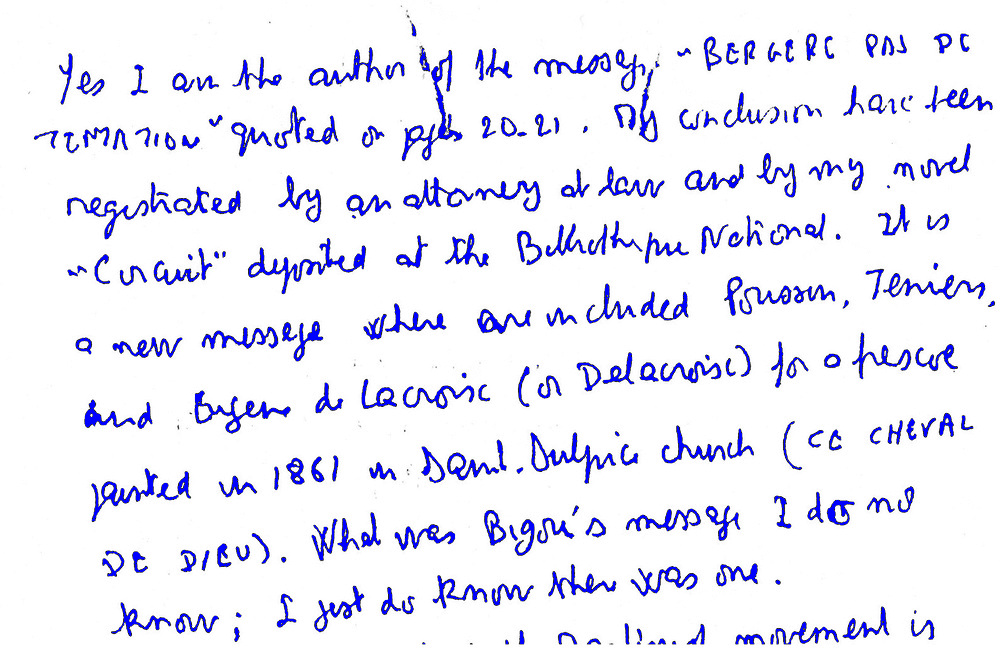 Yes I am the author of the message, "BERGERE PAS DE
TEMATION" quoted on pages 20-21. My conclusion have been
registrated by an attorney at law and by my novel
"Circuit" deposited at the National. It is
a new message where are included Poussin, Teniers,
and Eugene de Lacroise (or Delacroise) for a frescoe
painted in 1861 in Saint. Sulpice church (CE CHEVAL
DE DIEU). What was Bigou's message I do no
know; I just do know there was one.
movement is